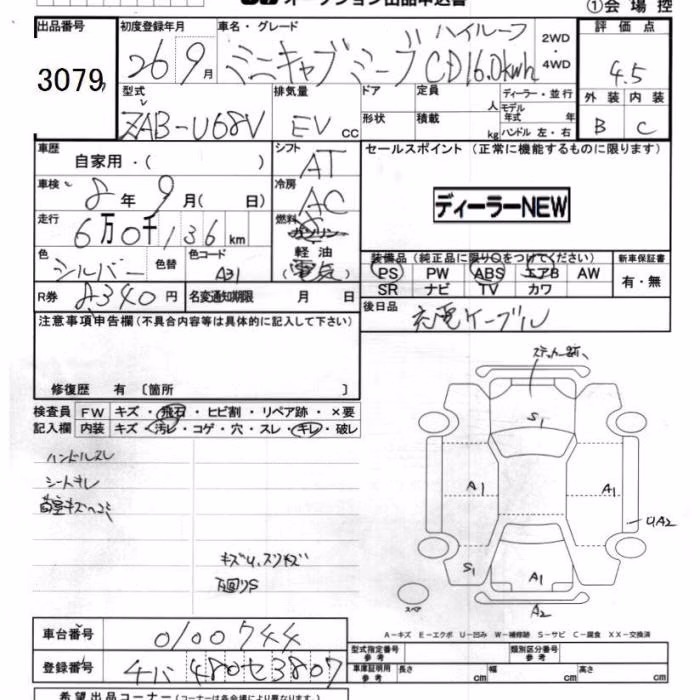 オークション出品申込書
①会場控
出品番号 初度登録年月 車名・グレード ハイルーフ 2WD・4WD 評価点
3079 26 9月 ミニキャブミーブ CD16.0kwh 4.5
型式 排気量 ドア 定員 人 ディーラー・並行 外装 内装
ZAB-U68V EV cc 形状 積載 kg モデル年式 年 ハンドル 左・右 B C
車歴 自家用・( ) シフト AT セールスポイント (正常に機能するものに限ります)
車検 8年 9月( 日) 冷房 AC ディーラーNEW
走行 6万0千136km 燃料 ガソリン
軽油
色 シルバー 色替 色コード A31 (電気)
装備品 (純正品に限り○をつけてください) 新車保証書
PS PW ABS エアB AW 有・無
SR ナビ TV カワ
R券 8340円 名変通知期限 月 日
後日品 充電ケーブル
注意事項申告欄 (不具合内容等は具体的に記入して下さい)
修復歴 有 〔箇所 〕
検査員 FW キズ・飛石・ヒビ割・リペア跡・×要
記入欄 内装 キズ・汚レ・コゲ・穴・スレ・キレ・破レ
ハンドルスレ
シートキレ
キズU、スリキズ
下回りS
S1
A1 A1
UA2
S1 A1
A2
スペア
A-キズ E-エクボ U-凹み W-補修跡 S-サビ C-腐食 XX-交換済
車台番号 0100744
型式指定番号 参考 類別区分番号 参考
登録番号 480セ3807
車庫証明用 参考 長さ cm 幅 cm 高さ cm
希望出品コーナー (コーナーは各会場により異なります。)